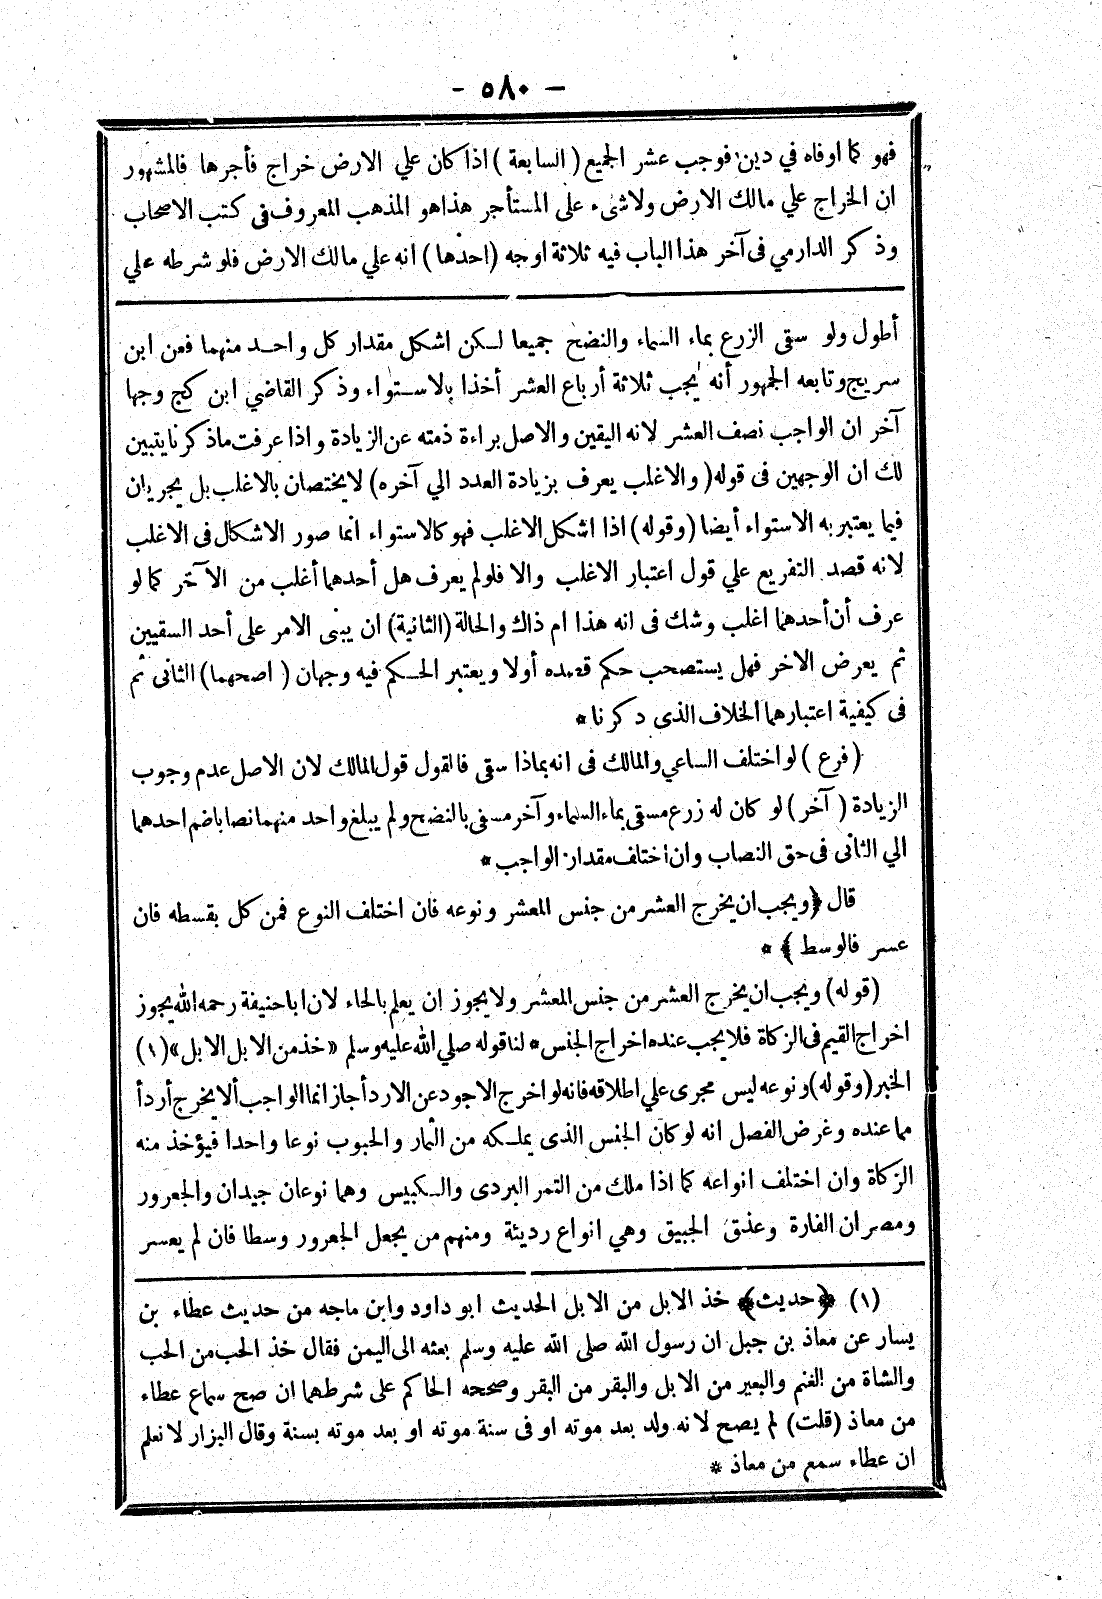 - ٥٨٠ -
فهو كما اوفاه في دين فوجب عشر الجميع ( السابعة ) اذا كان علي الارض خراج فأجرها فالمشهور
ان الخراج علي مالك الارض ولا شىء على المستأجر هذا هو المذهب المعروف فى كتب الاصحاب
وذكر الدارمي فى آخر هذا الباب فيه ثلاثة اوجه (احدها) انه علي مالك الارض فلو شرطه علي
أطول ولو سقى الزرع بماء السماء والنضح جميعا لكن اشكل مقدار كل واحد منهما فعن ابن
سريج وتابعه الجمهور أنه يجب ثلاثة أرباع العشر أخذا بالاستواء وذكر القاضي ابن كج وجها
آخر ان الواجب نصف العشر لانه اليقين والاصل براءة ذمته عن الزيادة واذا عرفت ماذكرنا يتبين
لك ان الوجهين فى قوله ( والاغلب يعرف بزيادة العدد الي آخره) لا يختصان بالاغلب بل يجريان
فيما يعتبر به الاستواء أيضا (وقوله) اذا اشكل الاغلب فهو كالاستواء انما صور الاشكال فى الاغلب
لانه قصد التفريع علي قول اعتبار الاغلب والا فلو لم يعرف هل أحدهما أغلب من الآخر كما لو
عرف أن أحدهما اغلب وشك فى انه هذا ام ذاك والحالة (الثانية) ان يبنى الامر على أحد السقيين
ثم يعرض الاخر فهل يستصحب حكم قصده أولا ويعتبر الحكم فيه وجهان ( اصحهما) الثانى ثم
فى كيفية اعتبارهما الخلاف الذى ذكرنا *
( فرع ) لو اختلف الساعي والمالك فى انه بماذا سقى فالقول قول المالك لان الاصل عدم وجوب
الزيادة ( آخر ) لو كان له زرع مسقى بماء السماء وآخر مسقى بالنضح ولم يبلغ واحد منهما نصابا ضم احدهما
الي الثانى فى حق النصاب وان اختلف مقدار الواجب *
قال ﴿ ويجب ان يخرج العشر من جنس المعشر ونوعه فان اختلف النوع فمن كل بقسطه فان
عسر فالوسط ﴾ *
(قوله) ويجب ان يخرج العشر من جنس المعشر ولا يجوز ان يعلم بالحاء لان ابا حنيفة رحمه الله يجوز
اخراج القيم فى الزكاة فلا يجب عنده اخراج الجنس * لنا قوله صلي الله عليه وسلم «خذ من الابل الابل» (١)
الخبر (وقوله) ونوعه ليس مجرى علي اطلاقه فانه لو اخرج الاجود عن الاردأ جاز انما الواجب ألا يخرج أردأ
مما عنده وغرض الفصل انه لو كان الجنس الذى يملكه من الثمار والحبوب نوعا واحدا فيؤخذ منه
الزكاة وان اختلف انواعه كما اذا ملك من التمر البردى والكبيس وهما نوعان جيدان والجعرور
ومصران الفارة وعذق الحبيق وهي انواع رديئة ومنهم من يجعل الجعرور وسطا فان لم يعسر
(١) ﴿ حديث ﴾ خذ الابل من الابل الحديث ابو داود وابن ماجه من حديث عطاء بن
يسار عن معاذ بن جبل ان رسول الله صلى الله عليه وسلم بعثه الى اليمن فقال خذ الحب من الحب
والشاة من الغنم والبعير من الابل والبقر من البقر وصححه الحاكم على شرطهما ان صح سماع عطاء
من معاذ (قلت) لم يصح لانه ولد بعد موته او فى سنة موته او بعد موته بسنة وقال البزار لا نعلم
ان عطاء سمع من معاذ *